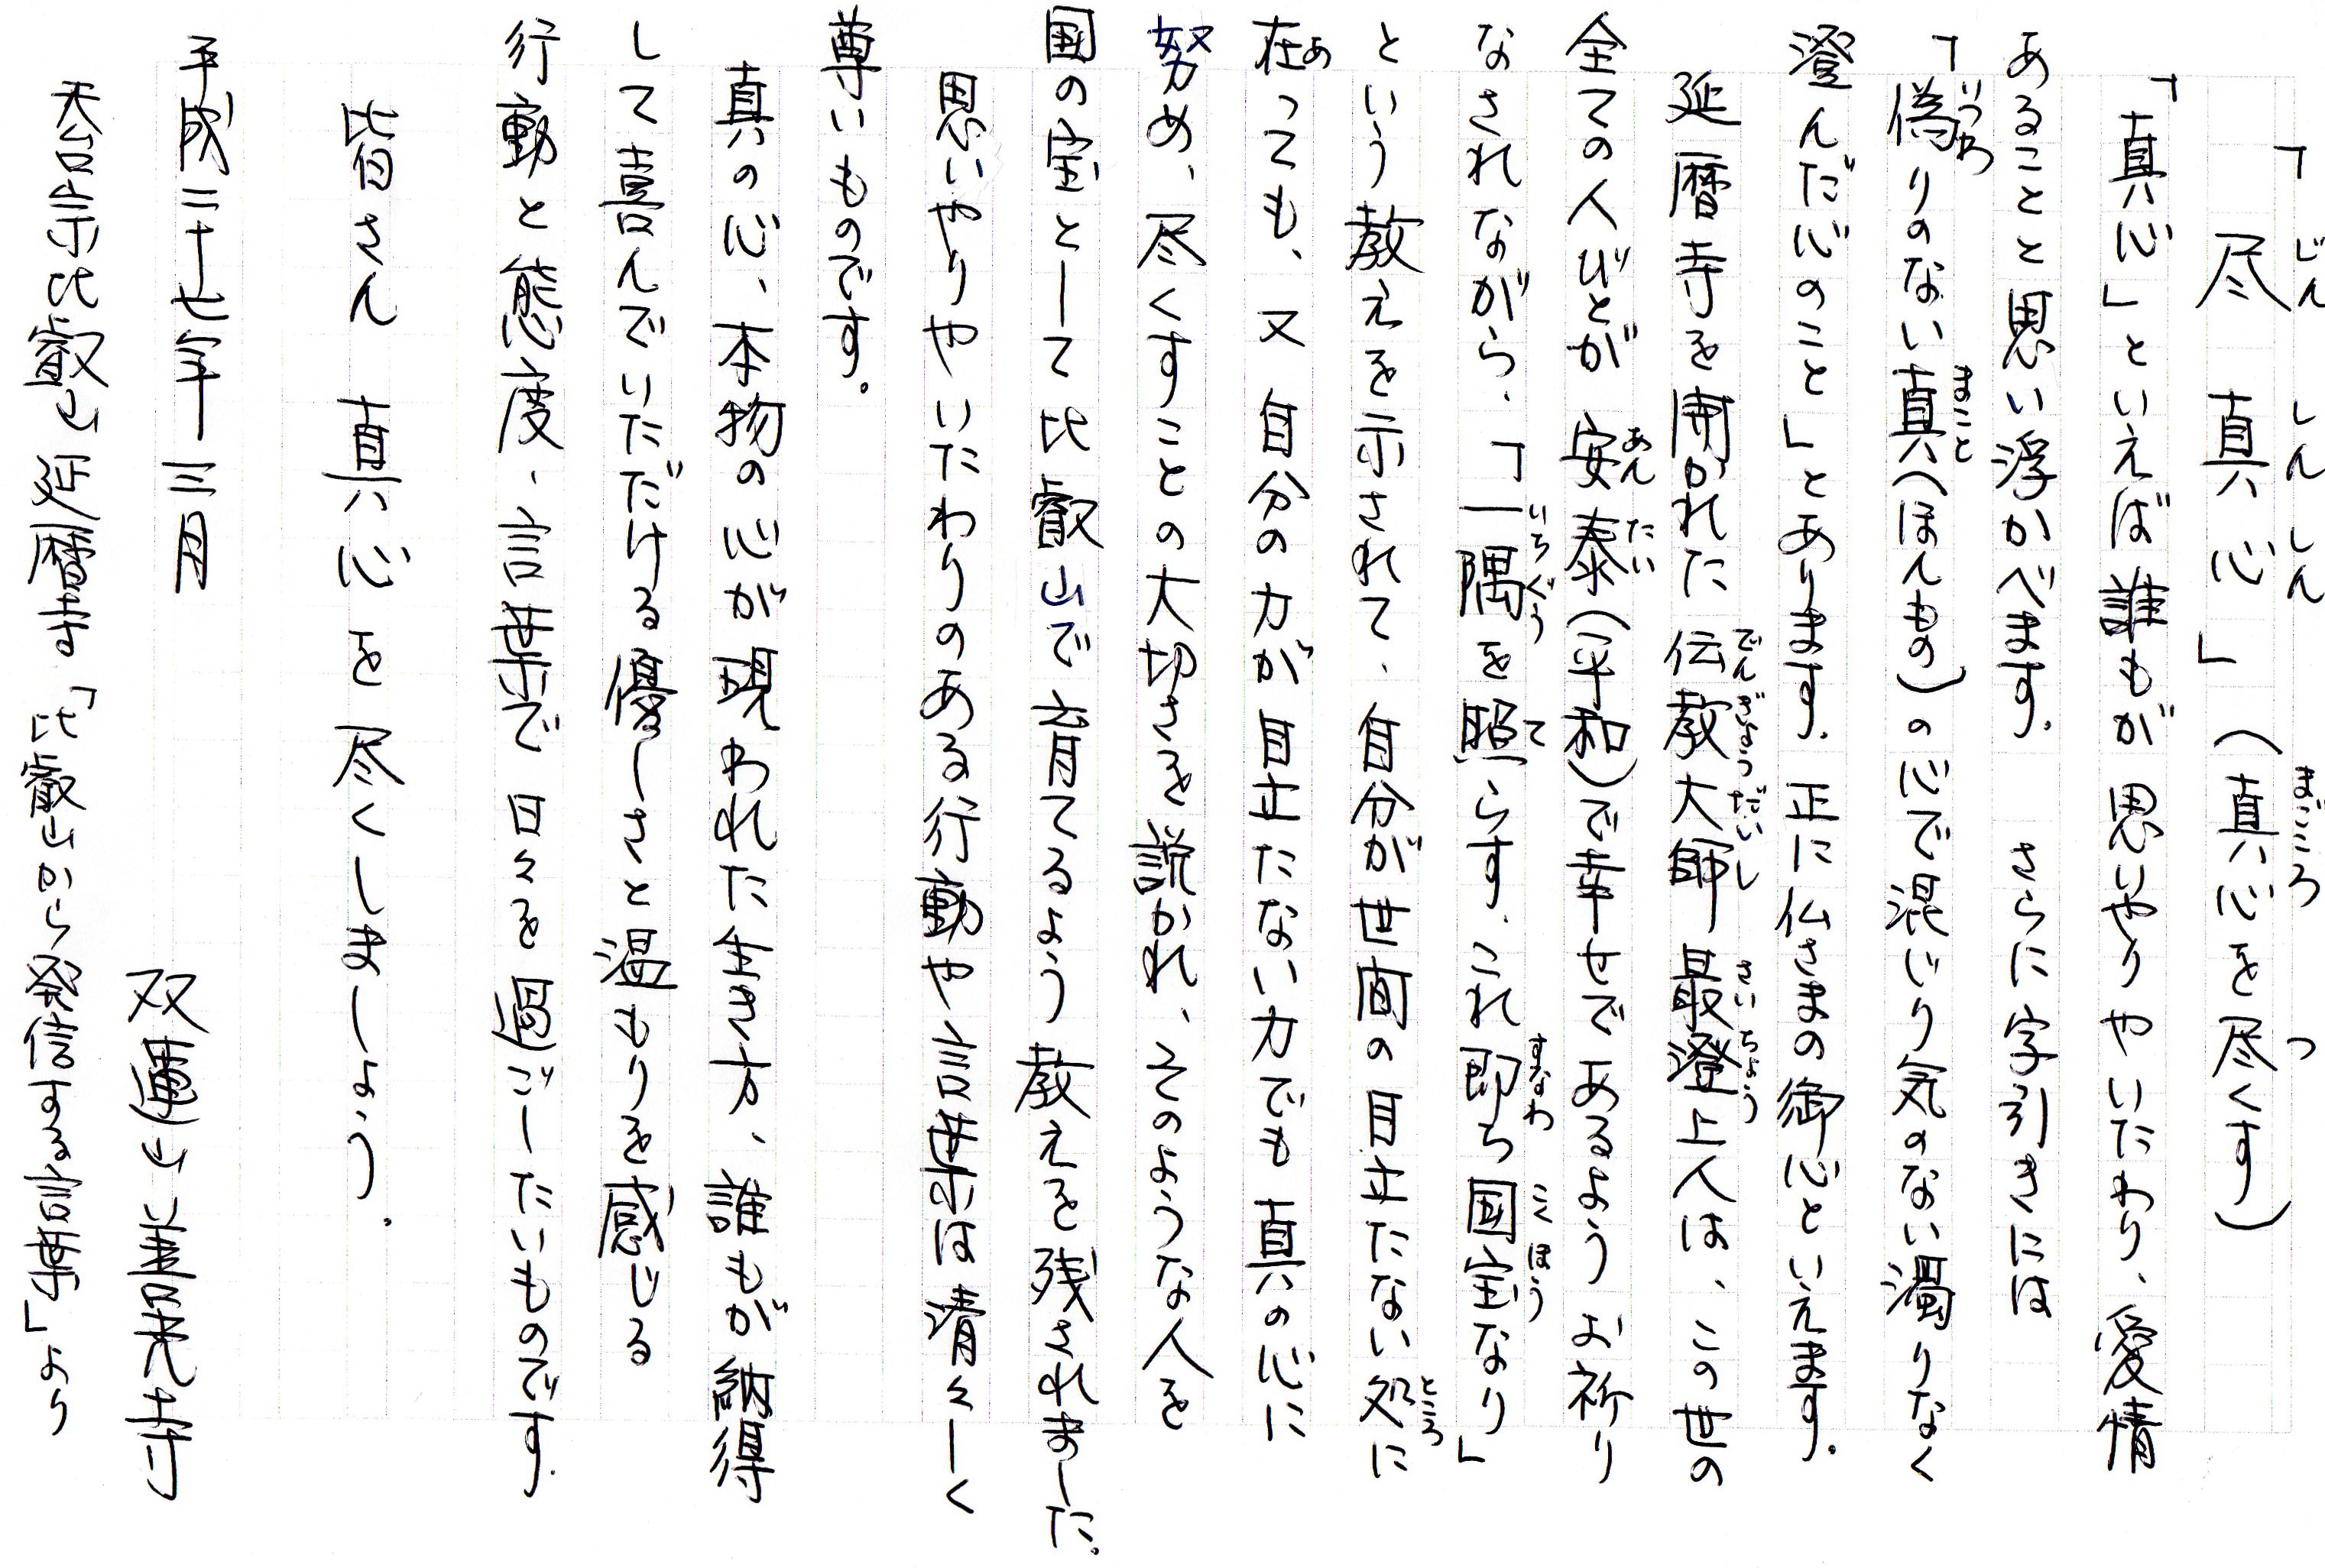 「尽真心」(真心を尽くす)
「真心」といえば誰もが思いやりやいたわり、愛情
あることと思い浮かべます。さらに字引きには
「偽りのない真(ほんもの)の心で混じり気のない濁りなく
澄んだ心のこと」とあります。正に仏さまの御心といえます。
延暦寺を開かれた伝教大師最澄上人は、この世の
全ての人びとが安泰(平和)で幸せであるようお祈り
なされながら、「一隅を照らす、これ即ち国宝なり」
という教えを示されて、自分が世間の目立たない処に
在っても、又自分の力が目立たない力でも真の心に
努め、尽くすことの大切さを説かれ、そのような人を
国の宝として比叡山で育てるよう教えを残されました。
思いやりやいたわりのある行動や言葉は清々しく
尊いものです。
真の心、本物の心が現われた生き方、誰もが納得
して喜んでいただける優しさと温もりを感じる
行動と態度、言葉で日々を過ごしたいものです。
皆さん 真心を尽くしましょう。
平成二十七年三月
双蓮山善光寺
天台宗比叡山延暦寺「比叡山から発信する言葉」より